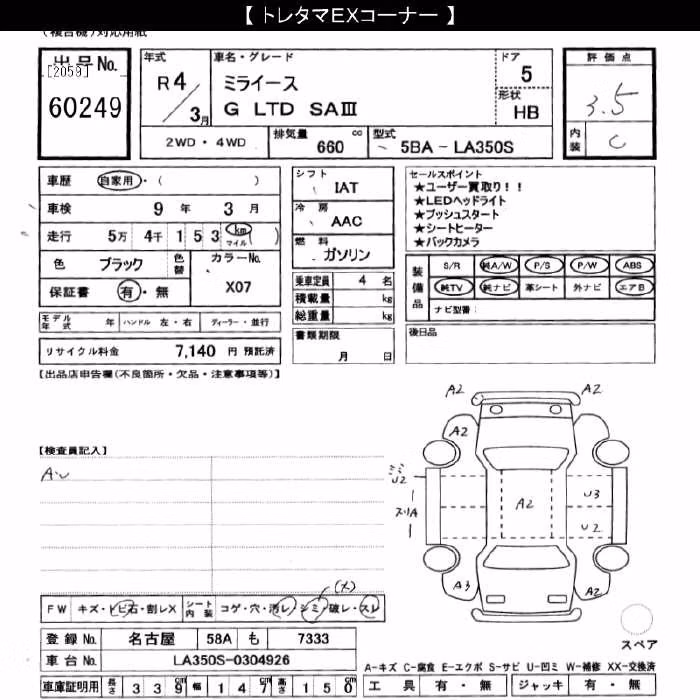 【 トレタマEXコーナー 】
(複合機)対応用紙
出品No.
[2059]
60249
年式
R4/3月
車名・グレード
ミライース
G LTD SAⅢ
ドア
5
形状
HB
2WD・4WD
排気量
660 cc
型式
5BA - LA350S
評価点
3.5
内装
C
車歴 自家用・( )
車検 9 年 3 月
走行 5万 4千 1 5 3 km マイル ( )
色 ブラック
色替
カラーNo.
X07
保証書 有・無
シフト
IAT
冷房
AAC
燃料
ガソリン
乗車定員 4 名
積載量 kg
総重量 kg
書類期限
月 日
セールスポイント
★ユーザー買取り!!
★LEDヘッドライト
★プッシュスタート
★シートヒーター
★バックカメラ
装備品
S/R 純A/W P/S P/W ABS
純TV 純ナビ 革シート 外ナビ エアB
ナビ型番:
後日品
モデル年式 年 ハンドル 左・右 ディーラー・並行
リサイクル料金 7,140 円 預託済
【出品店申告欄(不良箇所・欠品・注意事項等)】
【検査員記入】
A2 A2
A2 A2
シミ
U2
スリA
A2
U3
U2
A3 A2
スペア
(X)
FW キズ・トビ石・割レX シート内装 コゲ・穴・汚レ・シミ・破レ・スレ
登録 No. 名古屋 58A も 7333
車台 No. LA350S-0304926
車庫証明用 長さ 339cm 幅 147cm 高さ 150cm
A-キズ C-腐食 E-エクボ S-サビ U-凹ミ W-補修 XX-交換済
工具 有・無 ジャッキ 有・無